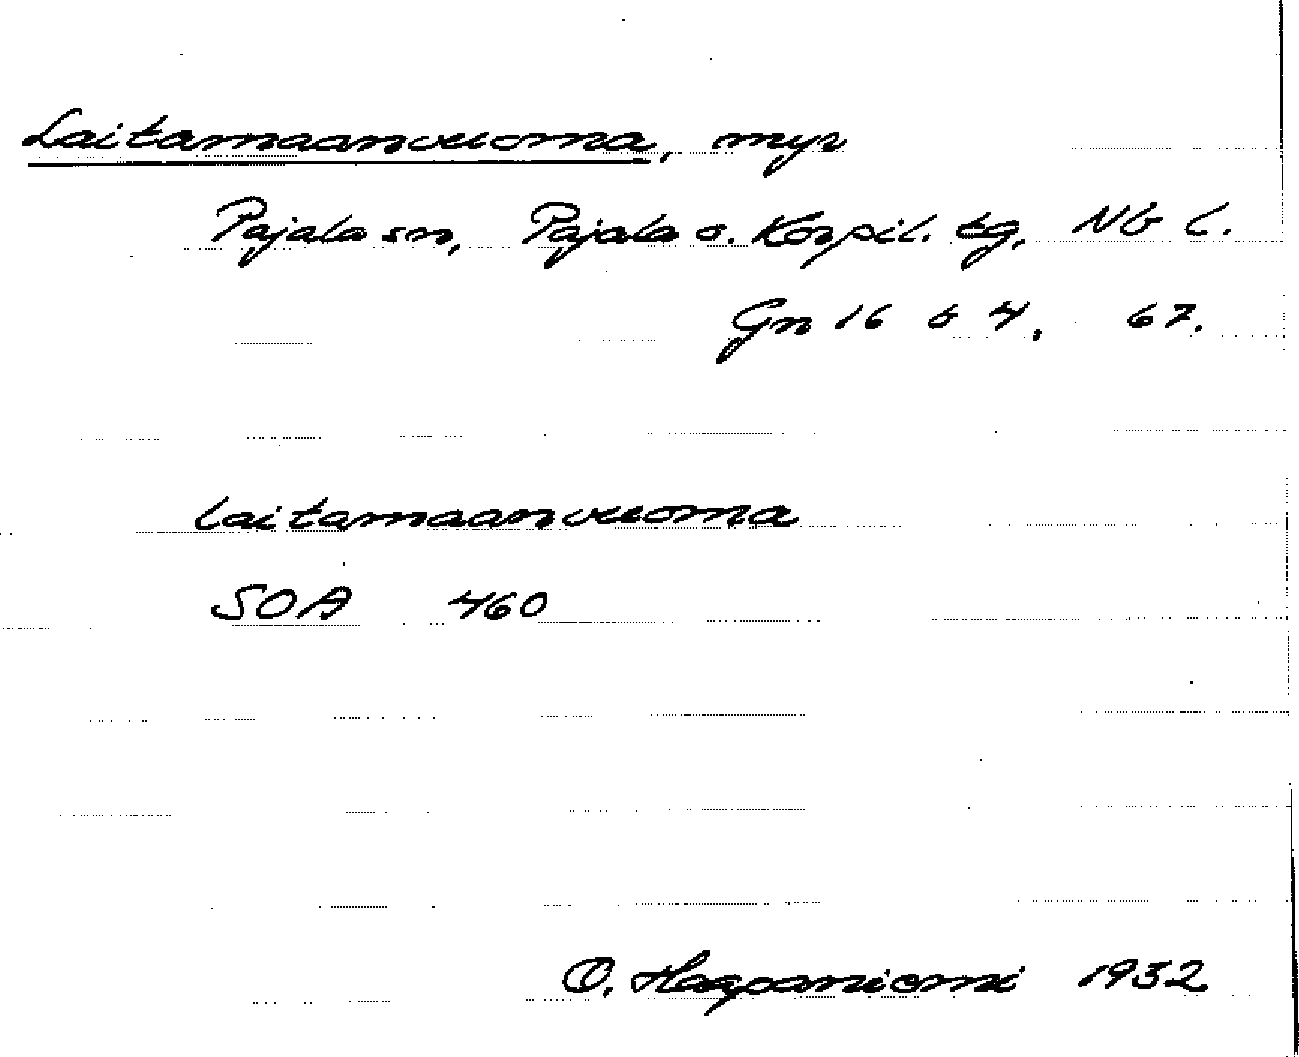 Laitamaanvuoma, myr
Pajala sn, Pajala o. Korpil. tg, Nb l.
Gn 16 b 4, 67.
laitamaanvuoma
SOA 460
O. Haapaniemi 1932